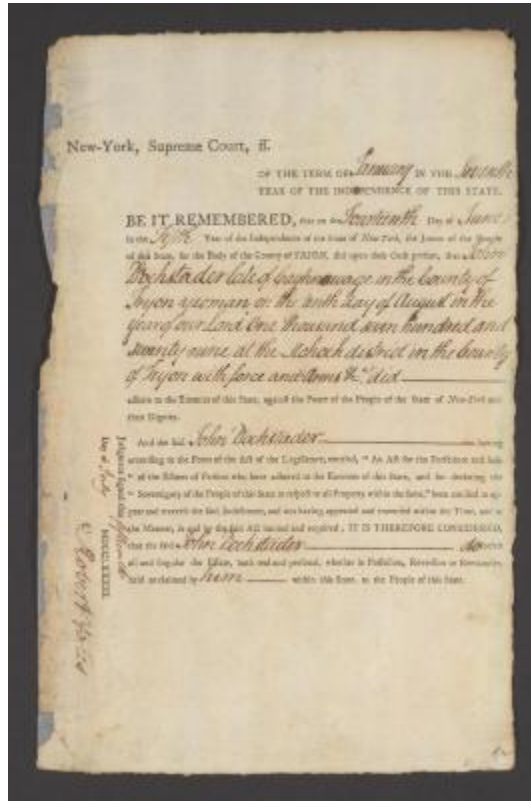 New-York, Supreme Court, ff.
OF THE TERM OF January IN THE Seventh
YEAR OF THE INDEPENDENCE OF THIS STATE.
BE IT REMEMBERED, that on the Fourteenth Day of June
in the Fifth Year of the Independence of the State of New-York, the Jurors of the People
of this State, for the Body of the County of TRYON, did upon their Oath present, that John
Dochstader late of Caghnawaga in the County of
Tryon yeoman on the tenth day of August in the
year of our Lord One thousand seven hundred and
seventy nine at the Mohock district in the County
of Tryon with force and Arms &c. did
adhere to the Enemies of this State, against the Peace of the People of the State of New-York and
their Dignity.
And the said John Dochstader having
according to the Form of the Act of the Legislature, entitled, "An Act for the Forfeiture and Sale
" of the Estates of Persons who have adhered to the Enemies of this State, and for declaring the
" Sovereignty of the People of this State in respect to all Property within the same," been notified to ap-
pear and traverse the said Indictment, and not having appeared and traversed within the Time, and in
the Manner, in and by the said Act limited and required; IT IS THEREFORE CONSIDERED,
that the said John Dochstader do forfeit
all and singular the Estate, both real and personal, whether in Possession, Reversion or Remainder,
held or claimed by him within this State, to the People of this State.
Judgment signed this fifteenth
Day of July MDCCLXXXIII.
Robert Yates